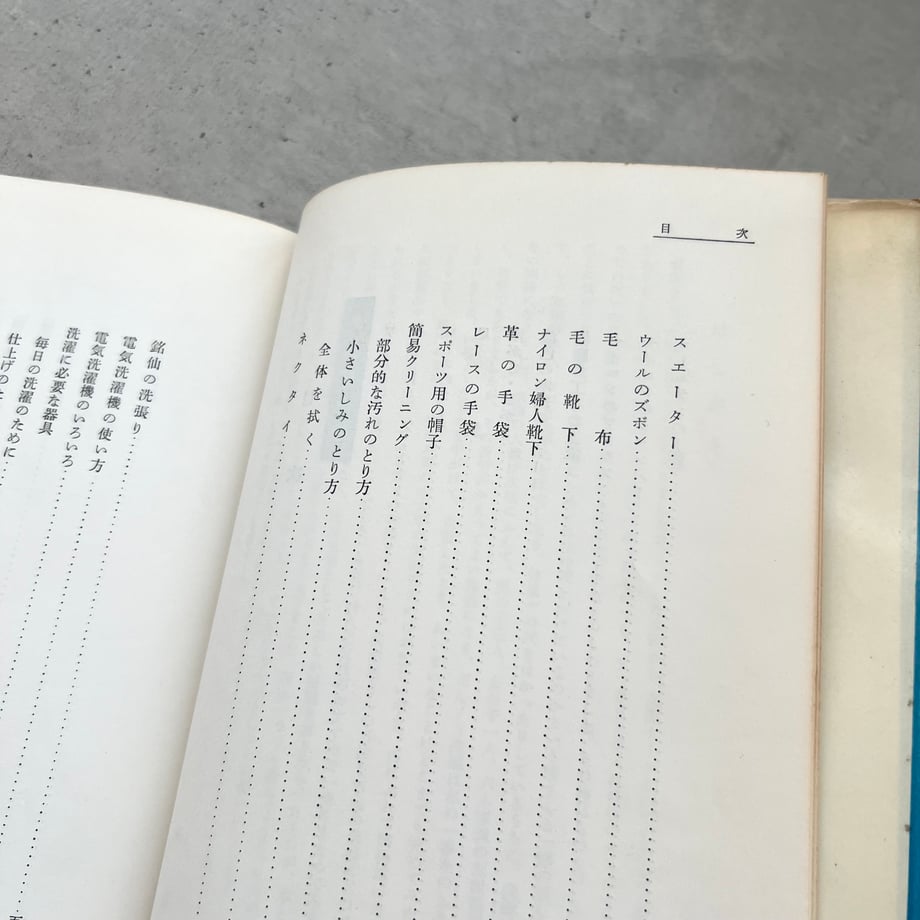 目次
スエーター
ウールのズボン
毛布
毛の靴下
ナイロン婦人靴下
革の手袋
レースの手袋
スポーツ用の帽子
簡易クリーニング
部分的な汚れのとり方
小さいしみのとり方
全体を拭く
ネクタイ
銘仙の洗張り
電気洗濯機の使い方
電気洗濯機のいろいろ
洗濯に必要な器具
毎日の洗濯のために
仕上げのた